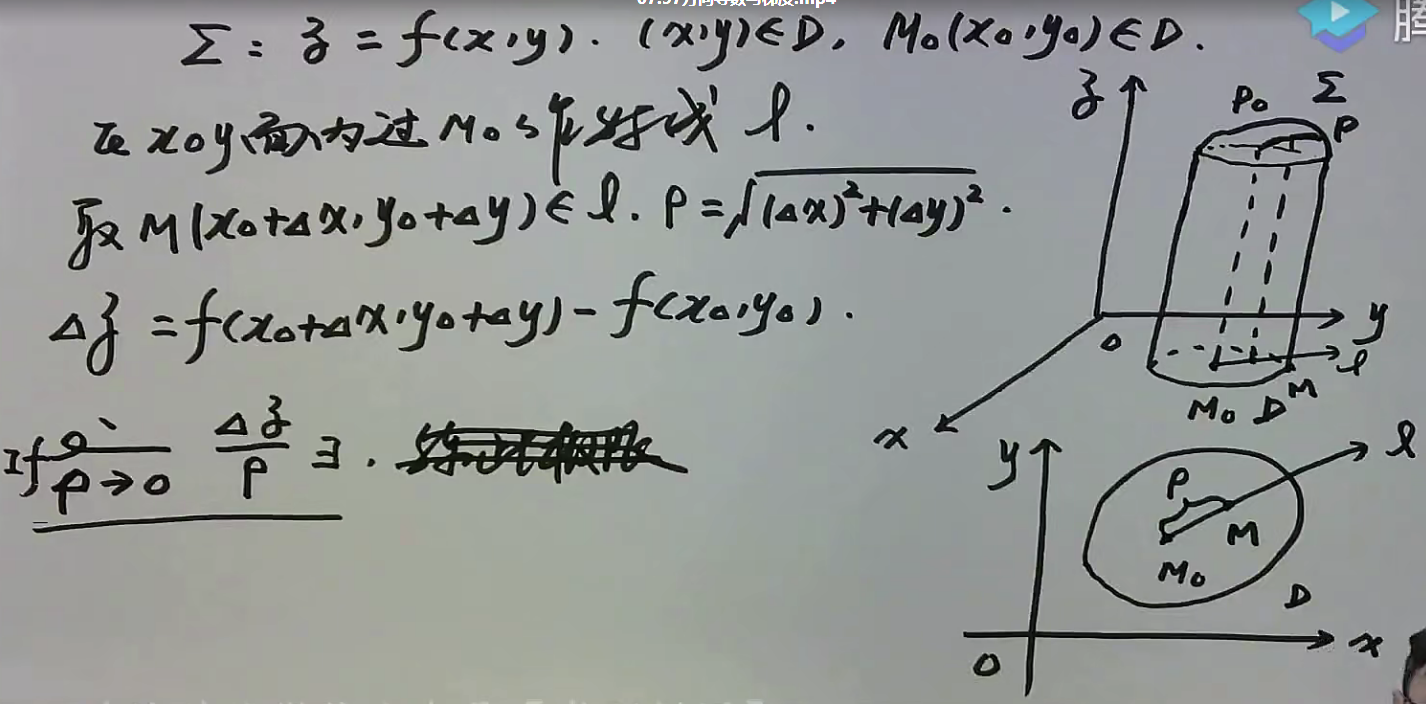 07.57方向导数与梯度.mp4
Σ: z = f(x,y). (x,y)∈D, M₀(x₀,y₀)∈D.
在 xoy 面内过 M₀ 作射线 l.
取 M(x₀+Δx, y₀+Δy)∈ l. ρ = √((Δx)²+(Δy)²).
Δz = f(x₀+Δx, y₀+Δy) - f(x₀,y₀).
If ρ→0 Δz/ρ ∃.
z P₀ Σ P
o y l
x M₀ D M
y l
ρ M
M₀ D
o x
腾